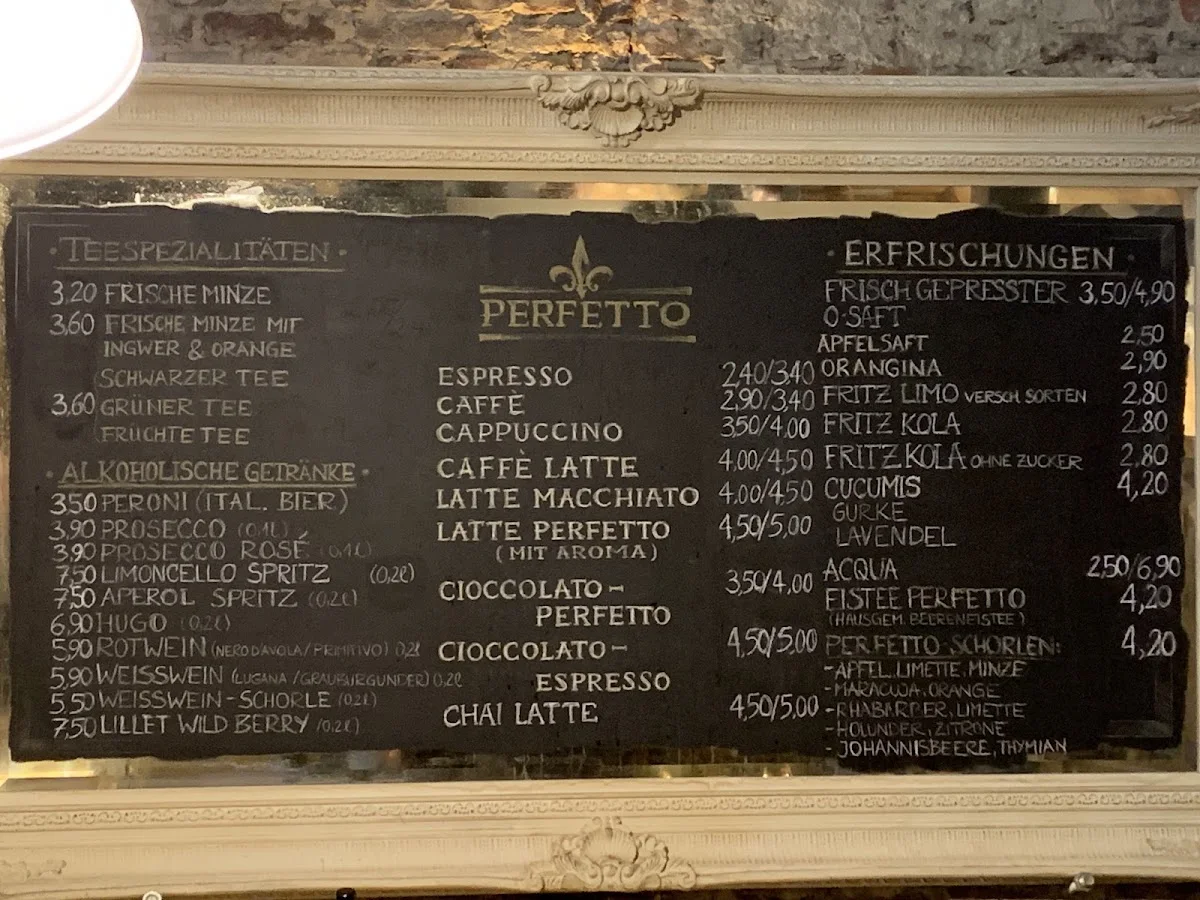 · TEESPEZIALITÄTEN ·
3,20 FRISCHE MINZE
3,60 FRISCHE MINZE MIT
INGWER & ORANGE
SCHWARZER TEE
3,60 GRÜNER TEE
FRÜCHTE TEE
· ALKOHOLISCHE GETRÄNKE ·
3,50 PERONI (ITAL. BIER)
3,90 PROSECCO (0,1L)
3,90 PROSECCO ROSÉ (0,1L)
7,50 LIMONCELLO SPRITZ (0,2L)
7,50 APEROL SPRITZ (0,2L)
6,90 HUGO (0,2L)
5,90 ROTWEIN (NERO D'AVOLA / PRIMITIVO) 0,2L
5,90 WEISSWEIN (LUGANA / GRAUBURGUNDER) 0,2L
5,50 WEISSWEIN-SCHORLE (0,2L)
7,50 LILLET WILD BERRY (0,2L)
PERFETTO
ESPRESSO 2,40/3,40
CAFFÈ 2,90/3,40
CAPPUCCINO 3,50/4,00
CAFFÈ LATTE 4,00/4,50
LATTE MACCHIATO 4,00/4,50
LATTE PERFETTO 4,50/5,00
(MIT AROMA)
CIOCCOLATO- 3,50/4,00
PERFETTO
CIOCCOLATO- 4,50/5,00
ESPRESSO
CHAI LATTE 4,50/5,00
· ERFRISCHUNGEN ·
FRISCH GEPRESSTER 3,50/4,90
O-SAFT
APFELSAFT 2,50
ORANGINA 2,90
FRITZ LIMO VERSCH. SORTEN 2,80
FRITZ KOLA 2,80
FRITZ KOLA OHNE ZUCKER 2,80
CUCUMIS 4,20
GURKE
LAVENDEL
ACQUA 2,50/6,90
EISTEE PERFETTO 4,20
(HAUSGEM. BEERENEISTEE)
PERFETTO-SCHORLEN: 4,20
- APFEL, LIMETTE, MINZE
- MARACUJA, ORANGE
- RHABARBER, LIMETTE
- HOLUNDER, ZITRONE
- JOHANNISBEERE, THYMIAN